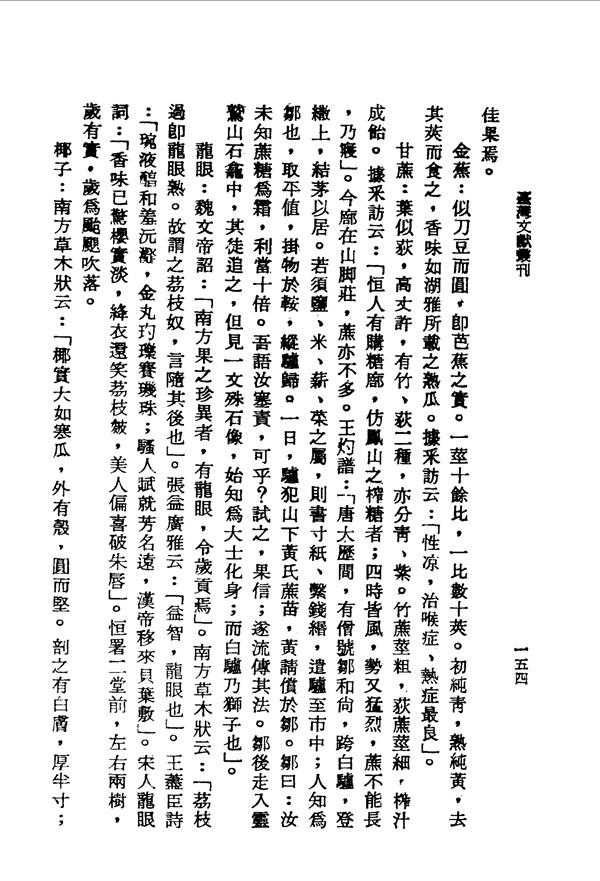 臺灣文獻叢刊
一五四
佳果焉。
金蕉：似刀豆而圓，卽芭蕉之實。一莖十餘比，一比數十莢。初純靑，熟純黃，去
其莢而食之，香味如湖雅所載之熟瓜。據釆訪云：「性凉，治喉症、熱症最良」。
甘蔗：葉似荻，高丈許，有竹、荻二種，亦分靑、紫。竹蔗莖粗，荻蔗莖細，榨汁
成飴。據釆訪云：「恒人有購糖廍，仿鳳山之榨糖者；四時皆風，勢又猛烈，蔗不能長
，乃寢」。今廍在山脚莊，蔗亦不多。王灼譜：「唐大歷間，有僧號鄒和尙，跨白驢，登
繖上，結茅以居。若須鹽、米、薪、菜之屬，則書寸紙、繫錢緡，遣驢至市中；人知爲
鄒也，取平值，掛物於鞍，縱驢歸。一日，驢犯山下黃氏蔗苗，黃請償於鄒。鄒曰：汝
未知蔗糖爲霜，利當十倍。吾語汝塞責，可乎？試之，果信；遂流傳其法。鄒後走入靈
鷲山石龕中，其徒追之，但見一文殊石像，始知爲大士化身；而白驢乃獅子也」。
龍眼：魏文帝詔：「南方果之珍異者，有龍眼，令歲貢焉」。南方草木狀云：「荔枝
過卽龍眼熟。故謂之荔枝奴，言隨其後也」。張益廣雅云：「益智，龍眼也」。王藎臣詩
：「琬液醕和羞沆瀣，金丸玓瓅賽璣珠；騷人賦就芳名遠，漢帝移來貝葉敷」。宋人龍眼
詞：「香味已驚櫻實淡，絳衣還笑荔枝皴，美人偏喜破朱唇」。恒署二堂前，左右兩樹，
歲有實，歲爲颱颶吹落。
椰子：南方草木狀云：「椰實大如寒瓜，外有殼，圓而堅。剖之有白膚，厚半寸；